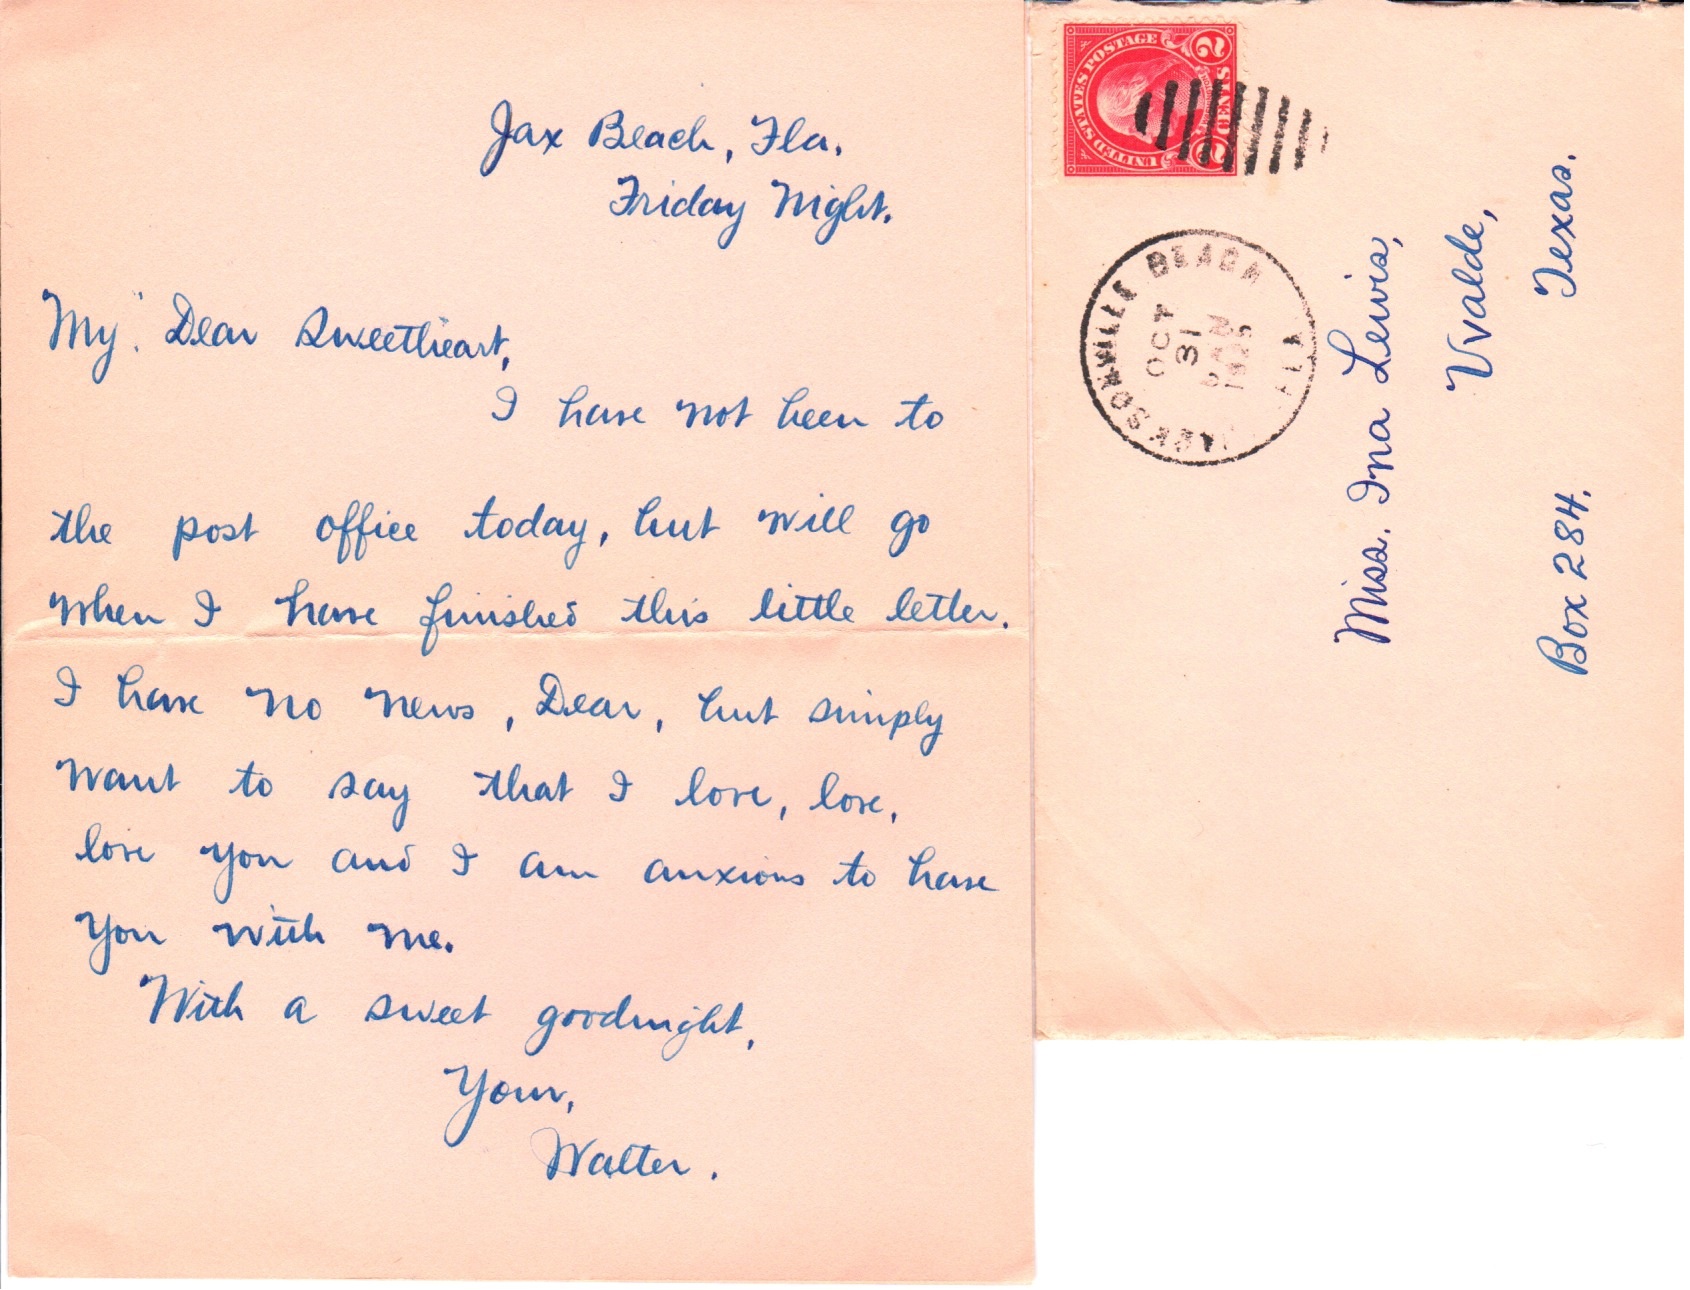 Jax Beach, Fla.
Friday Night.
My Dear Sweetheart,
I have not been to
the post office today, but will go
when I have finished this little letter.
I have no news, Dear, but simply
want to say that I love, love,
love you and I am anxious to have
you with me.
With a sweet goodnight,
Your,
Walter.
UNITED STATES POSTAGE
2 CENTS 2
JACKSONVILLE BEACH
FLA
OCT
31
1925
Miss. Ina Lewis,
Uvalde,
Box 284. Texas.